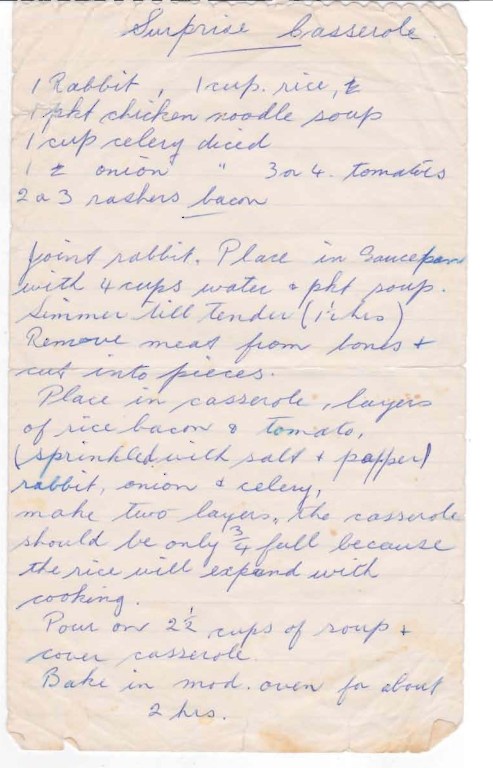 Surprise Casserole
1 Rabbit, 1 cup. rice, &
1 pkt chicken noodle soup
1 cup celery diced
1 " onion " 3 or 4. tomatoes
2 a 3 rashers bacon
Joint rabbit. Place in Saucepan
with 4 cups water & pkt soup.
Simmer till tender (1½ hrs)
Remove meat from bones +
cut into pieces.
Place in casserole, layers
of rice bacon & tomato,
(sprinkled with salt + papper)
rabbit, onion & celery,
make two layers, the casserole
should be only ¾ full because
the rice will expand with
cooking.
Pour on 2½ cups of soup +
cover casserole.
Bake in mod. oven for about
2 hrs.